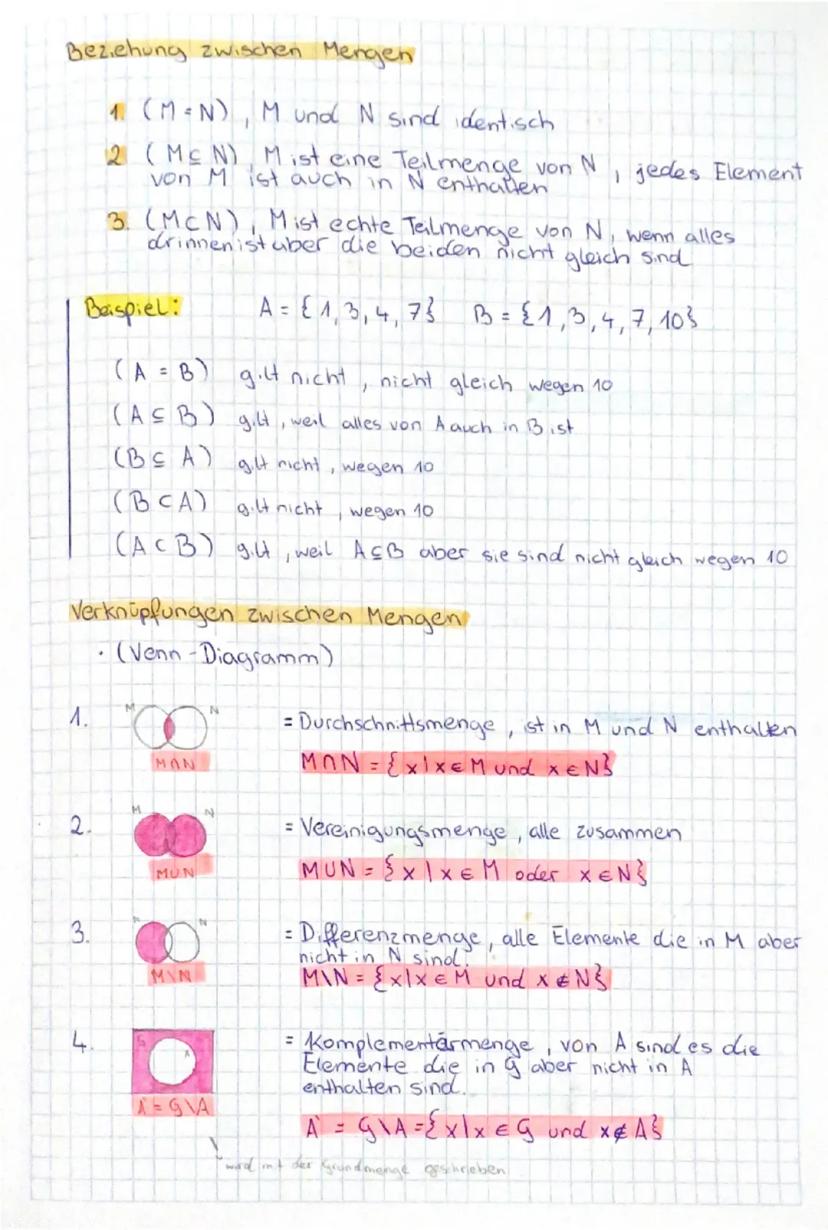 Beziehung zwischen Mengen
1. (M = N), M und N sind identisch
2. (M ⊆ N), M ist eine Teilmenge von N, jedes Element
von M ist auch in N enthalten
3. (M ⊂ N), M ist echte Teilmenge von N, wenn alles
drinnen ist aber die beiden nicht gleich sind
Beispiel: A = {1, 3, 4, 7} B = {1, 3, 4, 7, 10}
(A = B) gilt nicht, nicht gleich wegen 10
(A ⊆ B) gilt, weil alles von A auch in B ist
(B ⊆ A) gilt nicht, wegen 10
(B ⊂ A) gilt nicht, wegen 10
(A ⊂ B) gilt, weil A⊆B aber sie sind nicht gleich wegen 10
Verknüpfungen zwischen Mengen
• (Venn-Diagramm)
1. M N = Durchschnittsmenge, ist in M und N enthalten
M∩N M∩N = {x|x∈M und x∈N}
2. M N = Vereinigungsmenge, alle zusammen
M∪N M∪N = {x|x∈M oder x∈N}
3. M N = Differenzmenge, alle Elemente die in M aber
nicht in N sind.
M\N M\N = {x|x∈M und x∉N}
4. G A = Komplementärmenge, von A sind es die
Elemente die in G aber nicht in A
enthalten sind.
A' = G\A A' = G\A = {x|x∈G und x∉A}
wird mit der Grundmenge geschrieben